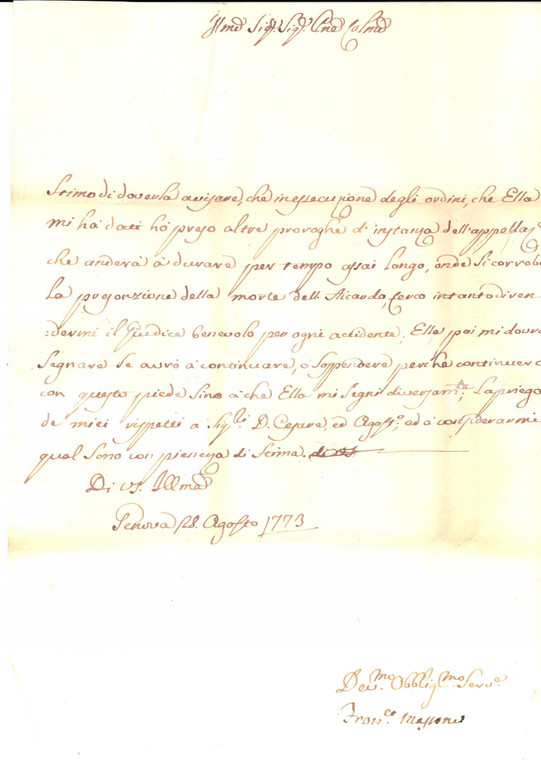 Illmo Sigr. Sigr. Pne Colmo
Stimo di doverla avisare, che in essecuzione degli ordini, che Ella
mi ha dati hò preso altre proroghe d'instanza dell'appellaz.
che anderà à durare per tempo assai longo, onde si corrobo
la presonzione della morte dell Ricardo, cerco intanto di ren
:dermi il Giudice benevolo per ogni accidente. Ella poi mi dovrà
segnare se avrò à continuare, o soppendere perche continuerò
con questo piede sino à che Ella mi segni diversamte. La priego
de miei rispetti a Sigri D. Cesare, ed Agosno, ed à considerarmi
qual sono con pienezza di stima.
Di VS. Illma
Genova 28. Agosto 1773
Devmo Obbligmo Serve
Franco Massone